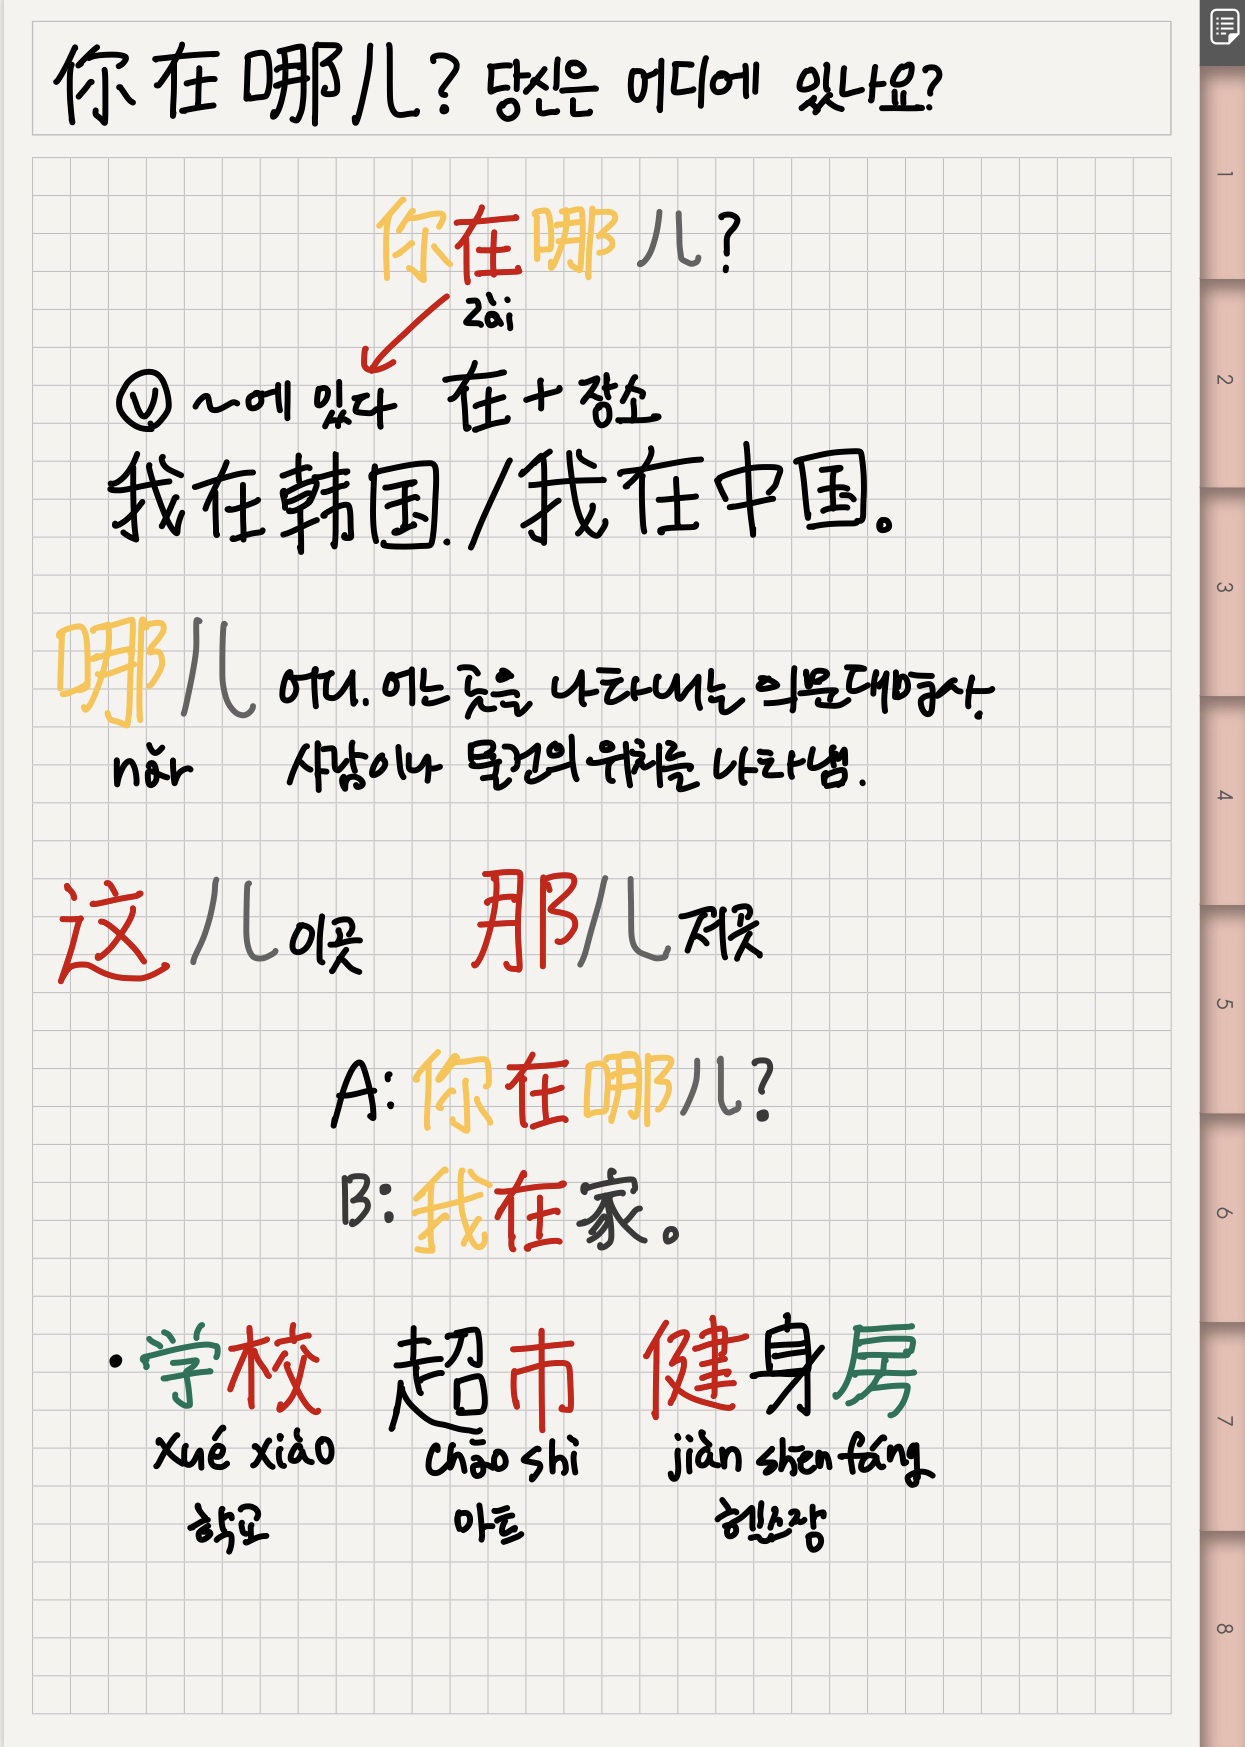 你在哪儿? 당신은 어디에 있나요?
你在哪儿?
zài
Ⓥ ~에 있다 在+장소
我在韩国./我在中国。
哪儿 어디. 어느 곳을 나타내는 의문대명사.
nǎr 사람이나 물건의 위치를 나타냄.
这儿 이곳 那儿 저곳
A: 你在哪儿?
B: 我在家。
· 学校 超市 健身房
xué xiào chāo shì jiàn shēn fáng
학교 마트 헬스장
1
2
3
4
5
6
7
8